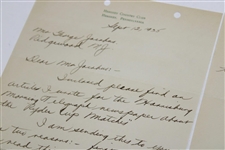 Sept 2 '35
Mr. George Jacobus
Ridgewood N.J.
Dear Mr. Jacobus:-
Enclosed please find an
articles I wrote for the
Morning Telegraph newspaper about
the "Ryder Cup Matches".
I am sending this to you
for two reasons:- first
read the